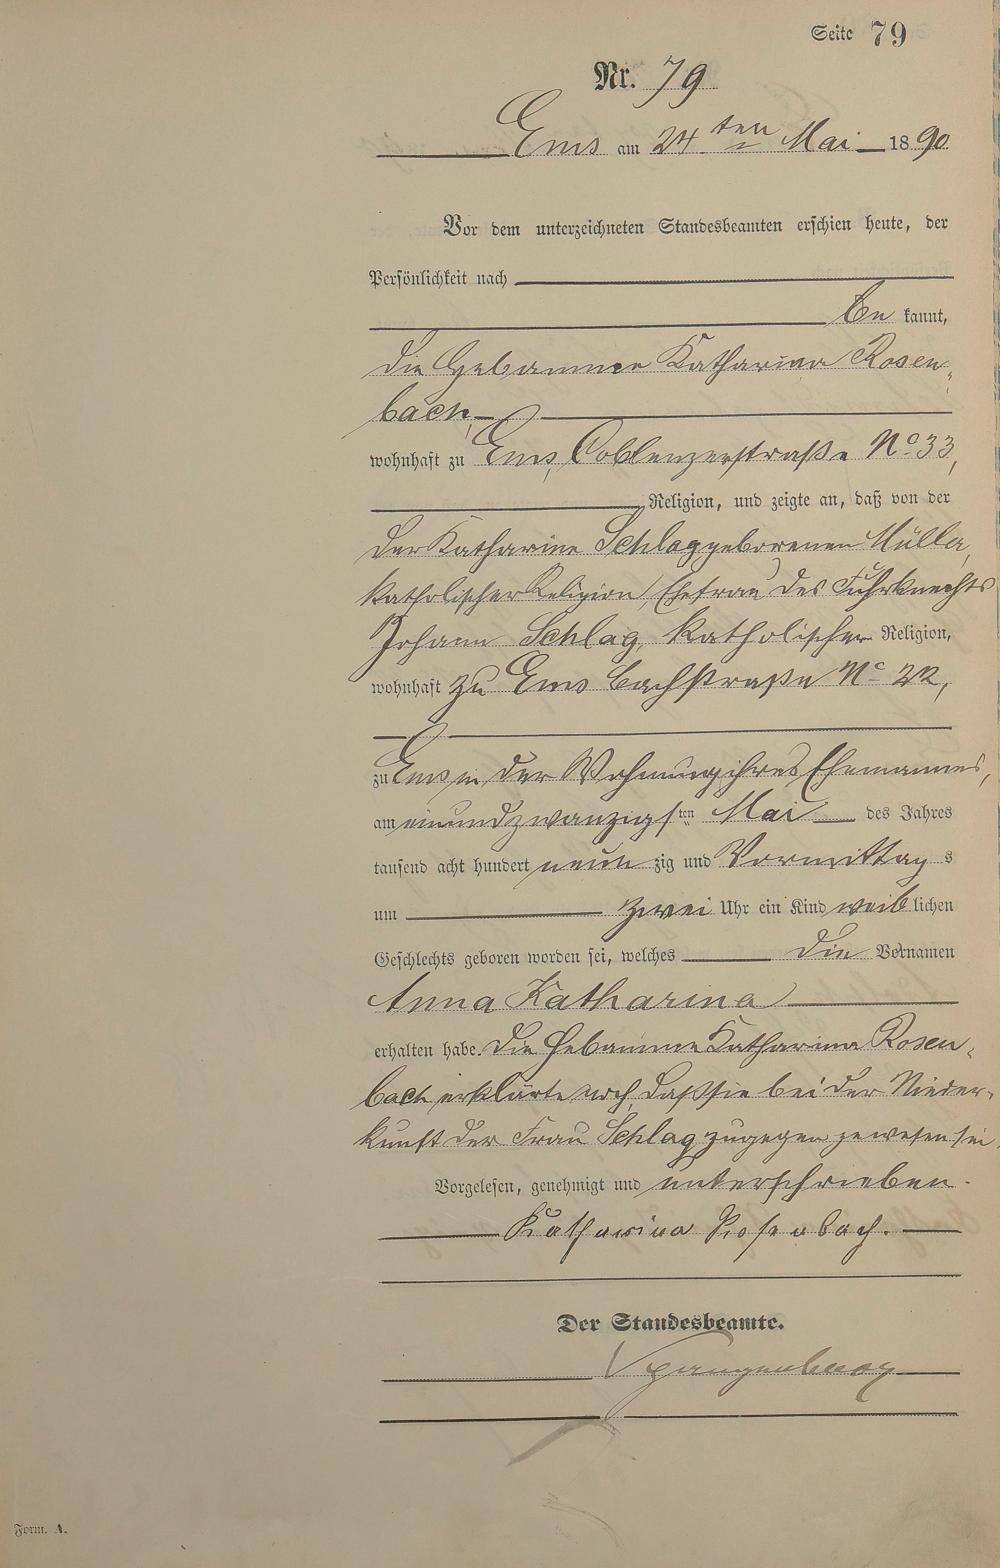 Seite 79
Nr. 79
Ems am 24ten Mai 1890
Vor dem unterzeichneten Standesbeamten erschien heute, der
Persönlichkeit nach
bekannt,
die Hebamme Katharina Rosen-
bach,
wohnhaft zu Ems, Coblenzerstraße No 33,
Religion, und zeigte an, daß von der
der Katharine Schlag geborenen Müller,
katholischer Religion, Ehefrau des Fuhrknechts
Johann Schlag, katholischer Religion,
wohnhaft zu Ems Bachstraße No 22,
zu Ems in der Wohnung ihres Ehemannes,
am einundzwanzigsten Mai des Jahres
tausend acht hundert neunzig und Vormittags
um zwei Uhr ein Kind weiblichen
Geschlechts geboren worden sei, welches die Vornamen
Anna Katharina
erhalten habe. Die Hebamme Katharina Rosen-
bach erklärte noch, daß sie bei der Nieder-
kunft der Frau Schlag zugegen gewesen sei.
Vorgelesen, genehmigt und unterschrieben.
Katharina Rosenbach.
Der Standesbeamte.
Form. A.